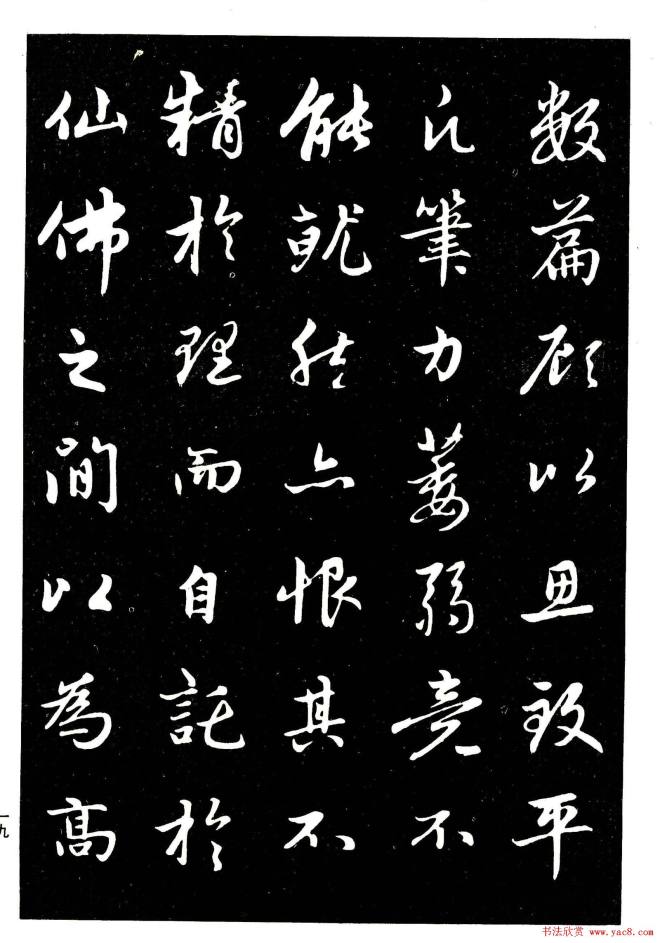 数篇顾以思致平
凡筆力萎弱竟不
能就然亦恨其不
精於理而自託於
仙佛之間以為高
一九
书法欣赏 www.yac8.com